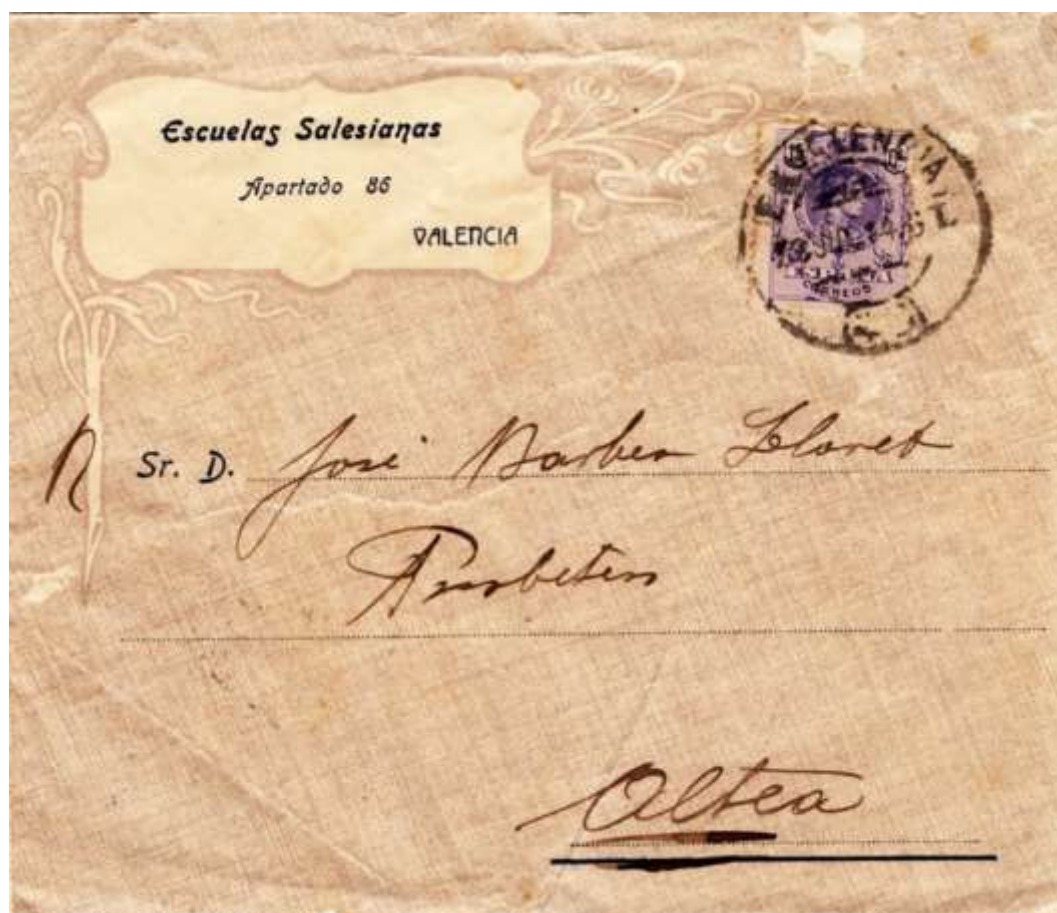 Escuelas Salesianas
Apartado 86
VALENCIA
CORREOS
Sr. D. José Barber Lloret
Presbítero
Altea